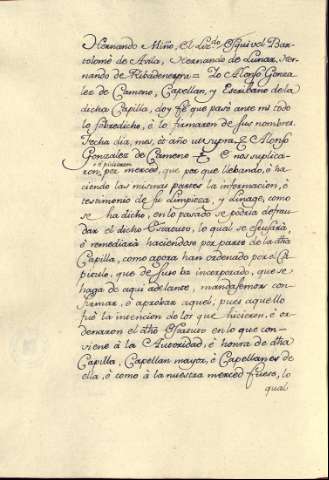 Hernando Niño, el Liz.do Esquivel Bar-
tolomè de Avila, Hernando de Lunar, Her-
nando de Ribadeneyra = Yo Alonso Gonza-
lez de Cameno, Capellan, y Escribano de la
dicha Capilla, doy fè que pasò ante mi todo
lo sobredicho, è lo firmaron de sus nombres
Fecha dia, mes, è año ut supra E Alonso
Gonzalez de Cameno = E nos suplica-
è pidieron
ron, por merced, que por que llebando, è ha-
ciendo las mismas partes la informacion, è
testimonio de su limpieza, y linage, como
se ha dicho, en lo pasado se podria defrau-
dar el dicho Estatuto, lo qual se escusarà,
è remediarà haciendose por parte de la dha
Capilla, como agora han ordenado por el Ca-
pitulo, que de suso ba incorporado, que se
haga de aqui adelante, mandasemos con-
firmar, è aprobar aquel, pues aquello
fuè la intencion de los que hicieron, è or-
denaron el dho Estatuto en lo que con-
viene à la Autoridad, è honra de dha
Capilla, Capellan mayor, è Capellanes de
ella, è como à la nuestra merced fuese, lo
qual